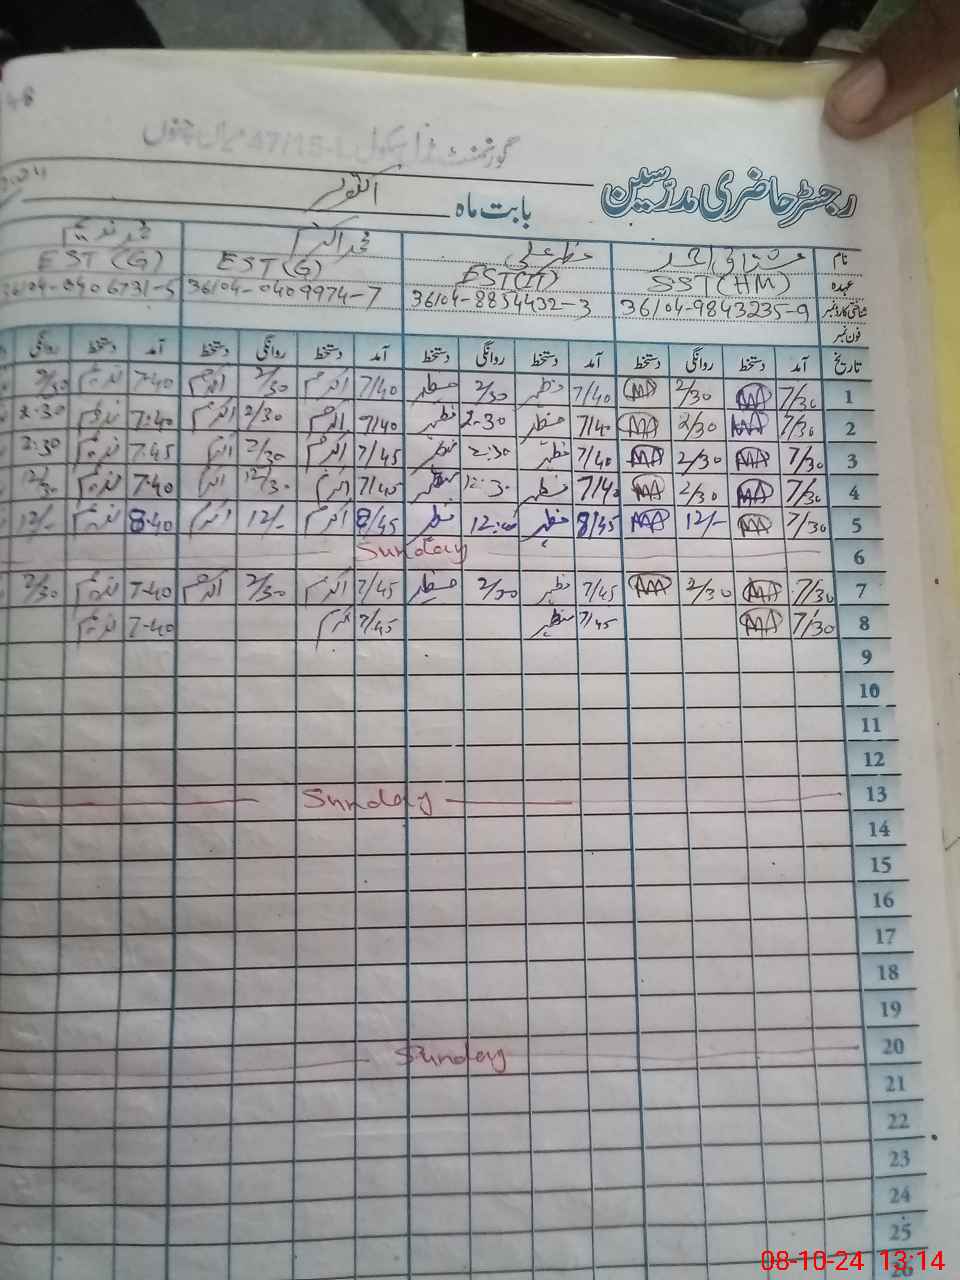 گورنمنٹ مڈل سکول 47/15-L میاں چنوں
رجسٹر حاضری مدرسین
بابت ماہ اکتوبر
نام مشتاق احمد مظہر علی محمد اکرم محمد ندیم
عہدہ SST(HM) EST(IT) EST(G) EST(G)
شناختی کارڈ نمبر 36104-9843235-9 36104-8854432-3 36104-0409974-7 36104-0406731-5
فون نمبر
تاریخ آمد دستخط روانگی دستخط آمد دستخط روانگی دستخط آمد دستخط روانگی دستخط آمد دستخط روانگی
1 7/30 2/30 7/40 مظہر 2/30 مظہر 7/40 اکرم 2/30 اکرم 7-40 ندیم 2/30
2 7/30 2/30 7/40 مظہر 2-30 مظہر 7/40 اکرم 2/30 اکرم 7-40 ندیم 2-30
3 7/30 2/30 7/40 مظہر 2:30 مظہر 7/45 اکرم 2/30 اکرم 7-45 ندیم 2:30
4 7/30 2/30 7/40 مظہر 12:30 مظہر 7/45 اکرم 12/30 اکرم 7-40 ندیم 12/30
5 7/30 12/- 8/45 مظہر 12:00 مظہر 8/45 اکرم 12/- اکرم 8-40 ندیم 12/-
6 Sunday
7 7/30 2/30 7/45 مظہر 2/30 مظہر 7/45 اکرم 2/30 اکرم 7-40 ندیم 2/30
8 7/30 7/45 مظہر 7/45 اکرم 7-40 ندیم
9
10
11
12
13 Sunday
14
15
16
17
18
19
20 Sunday
21
22
23
24
25
26
08-10-24 13:14